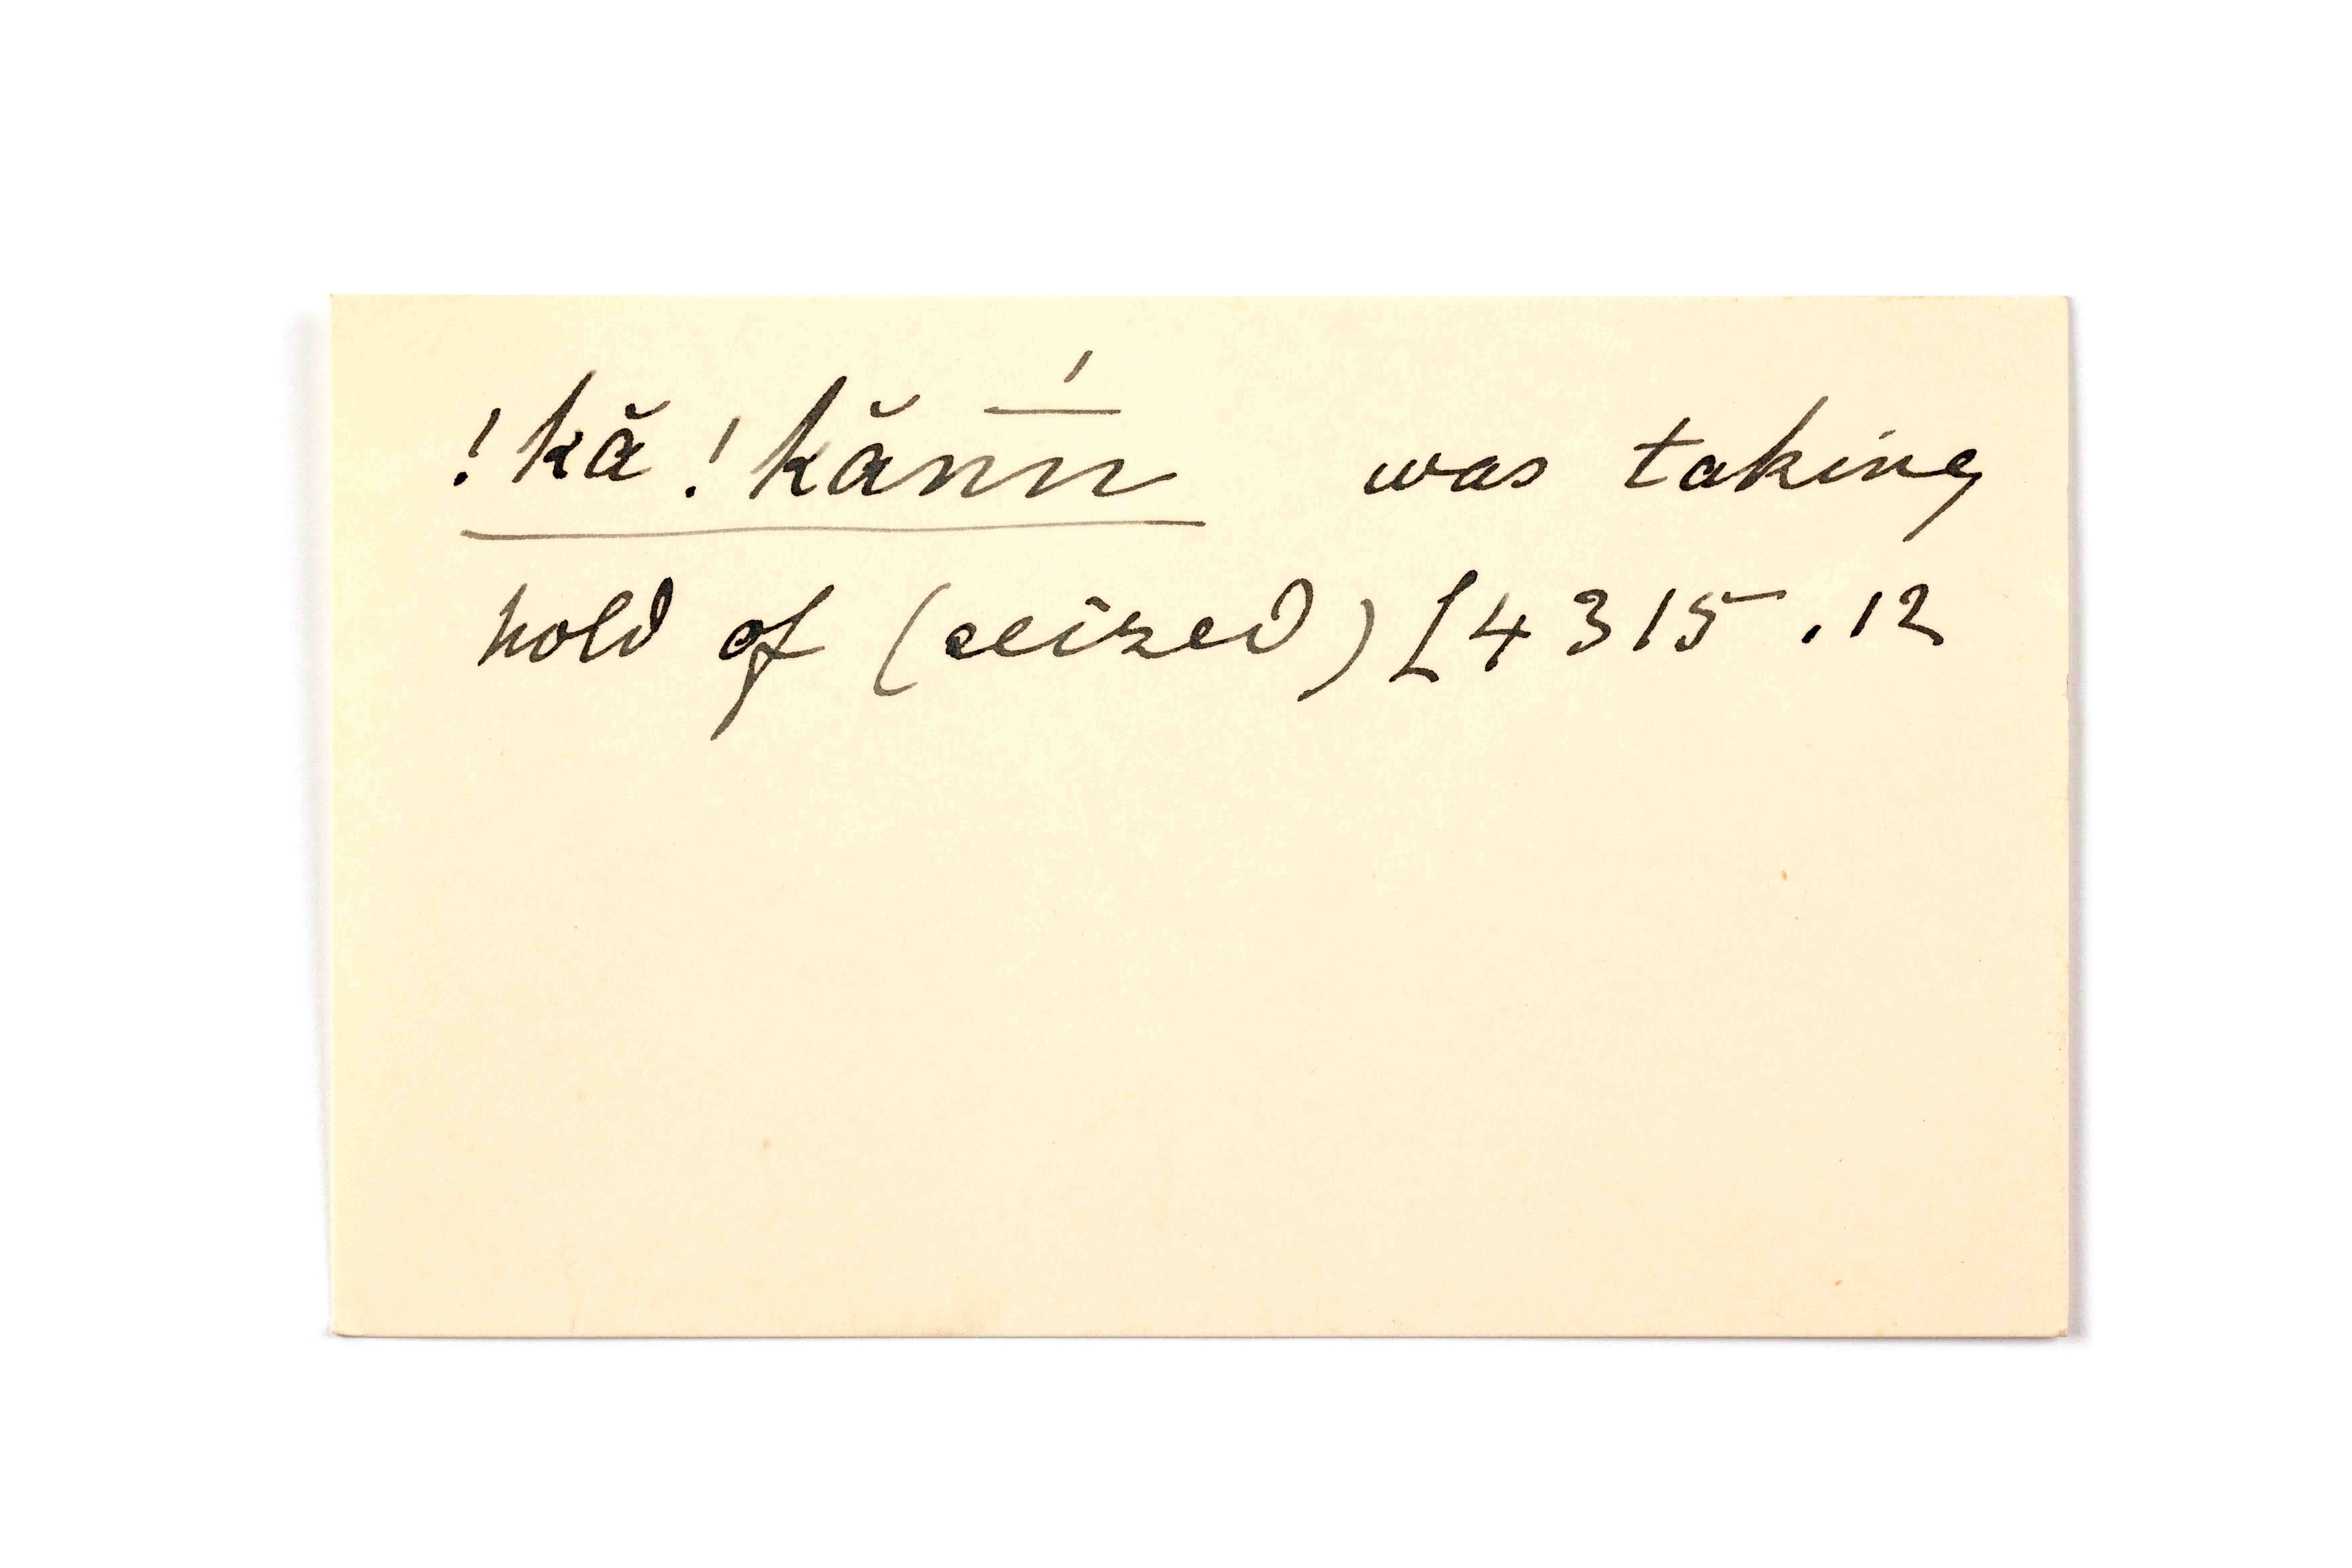 !kă!kănn̄́ was taking
hold of (seized) L4315.12